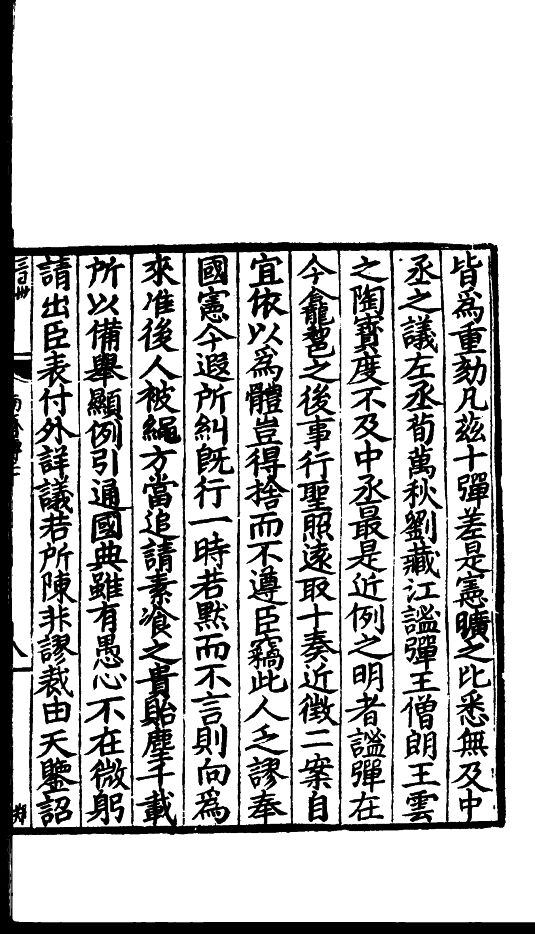 皆爲重劾凡兹十彈差是憲曠之比悉無及中
丞之議左丞荀萬秋劉藏江謐彈王僧朗王雲
之陶寶度不及中丞最是近例之明者謐彈在
今龕𪚥之後事行聖照遠取十奏近徵二案自
宜依以爲體豈得捨而不遵臣竊此人乏謬奉
國憲今遐所糾旣行一時若默而不言則向爲
來准後人被繩方當追請素飡之責貽塵千載
所以備舉顯例引通國典雖有愚心不在微躬
請出臣表付外詳議若所陳非謬裁由天鑒詔